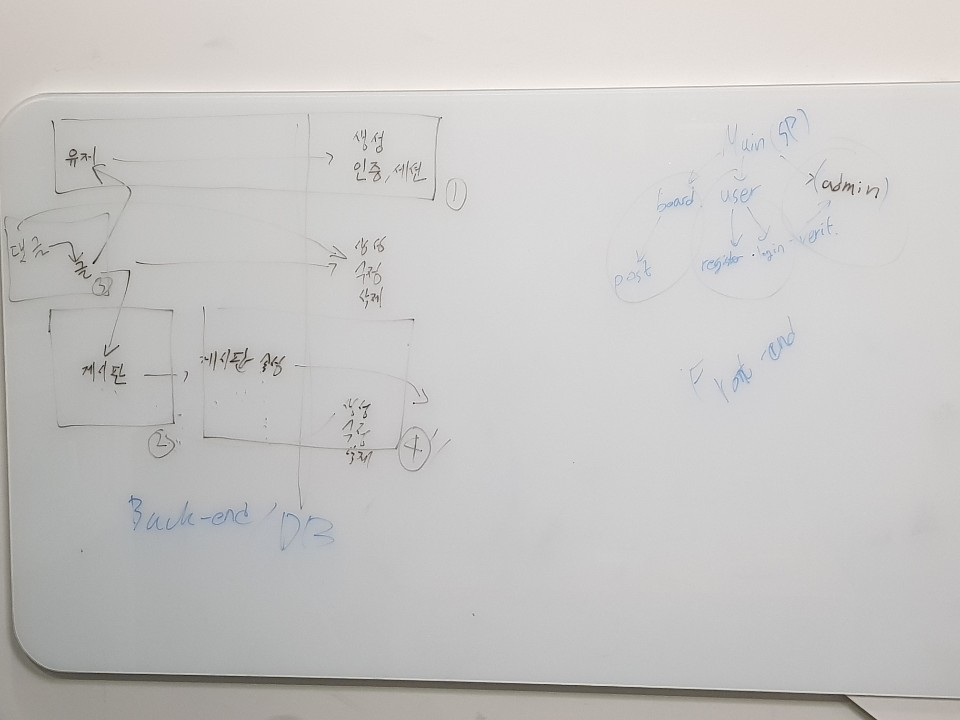 유저
생성
인증, 세션
①
댓글
글
③
생성
수정
삭제
게시판
②
게시판 생성
생성
수정
삭제
④
Back-end
DB
Main (SP)
board
user
(admin)
post
register
login
verit.
Front-end